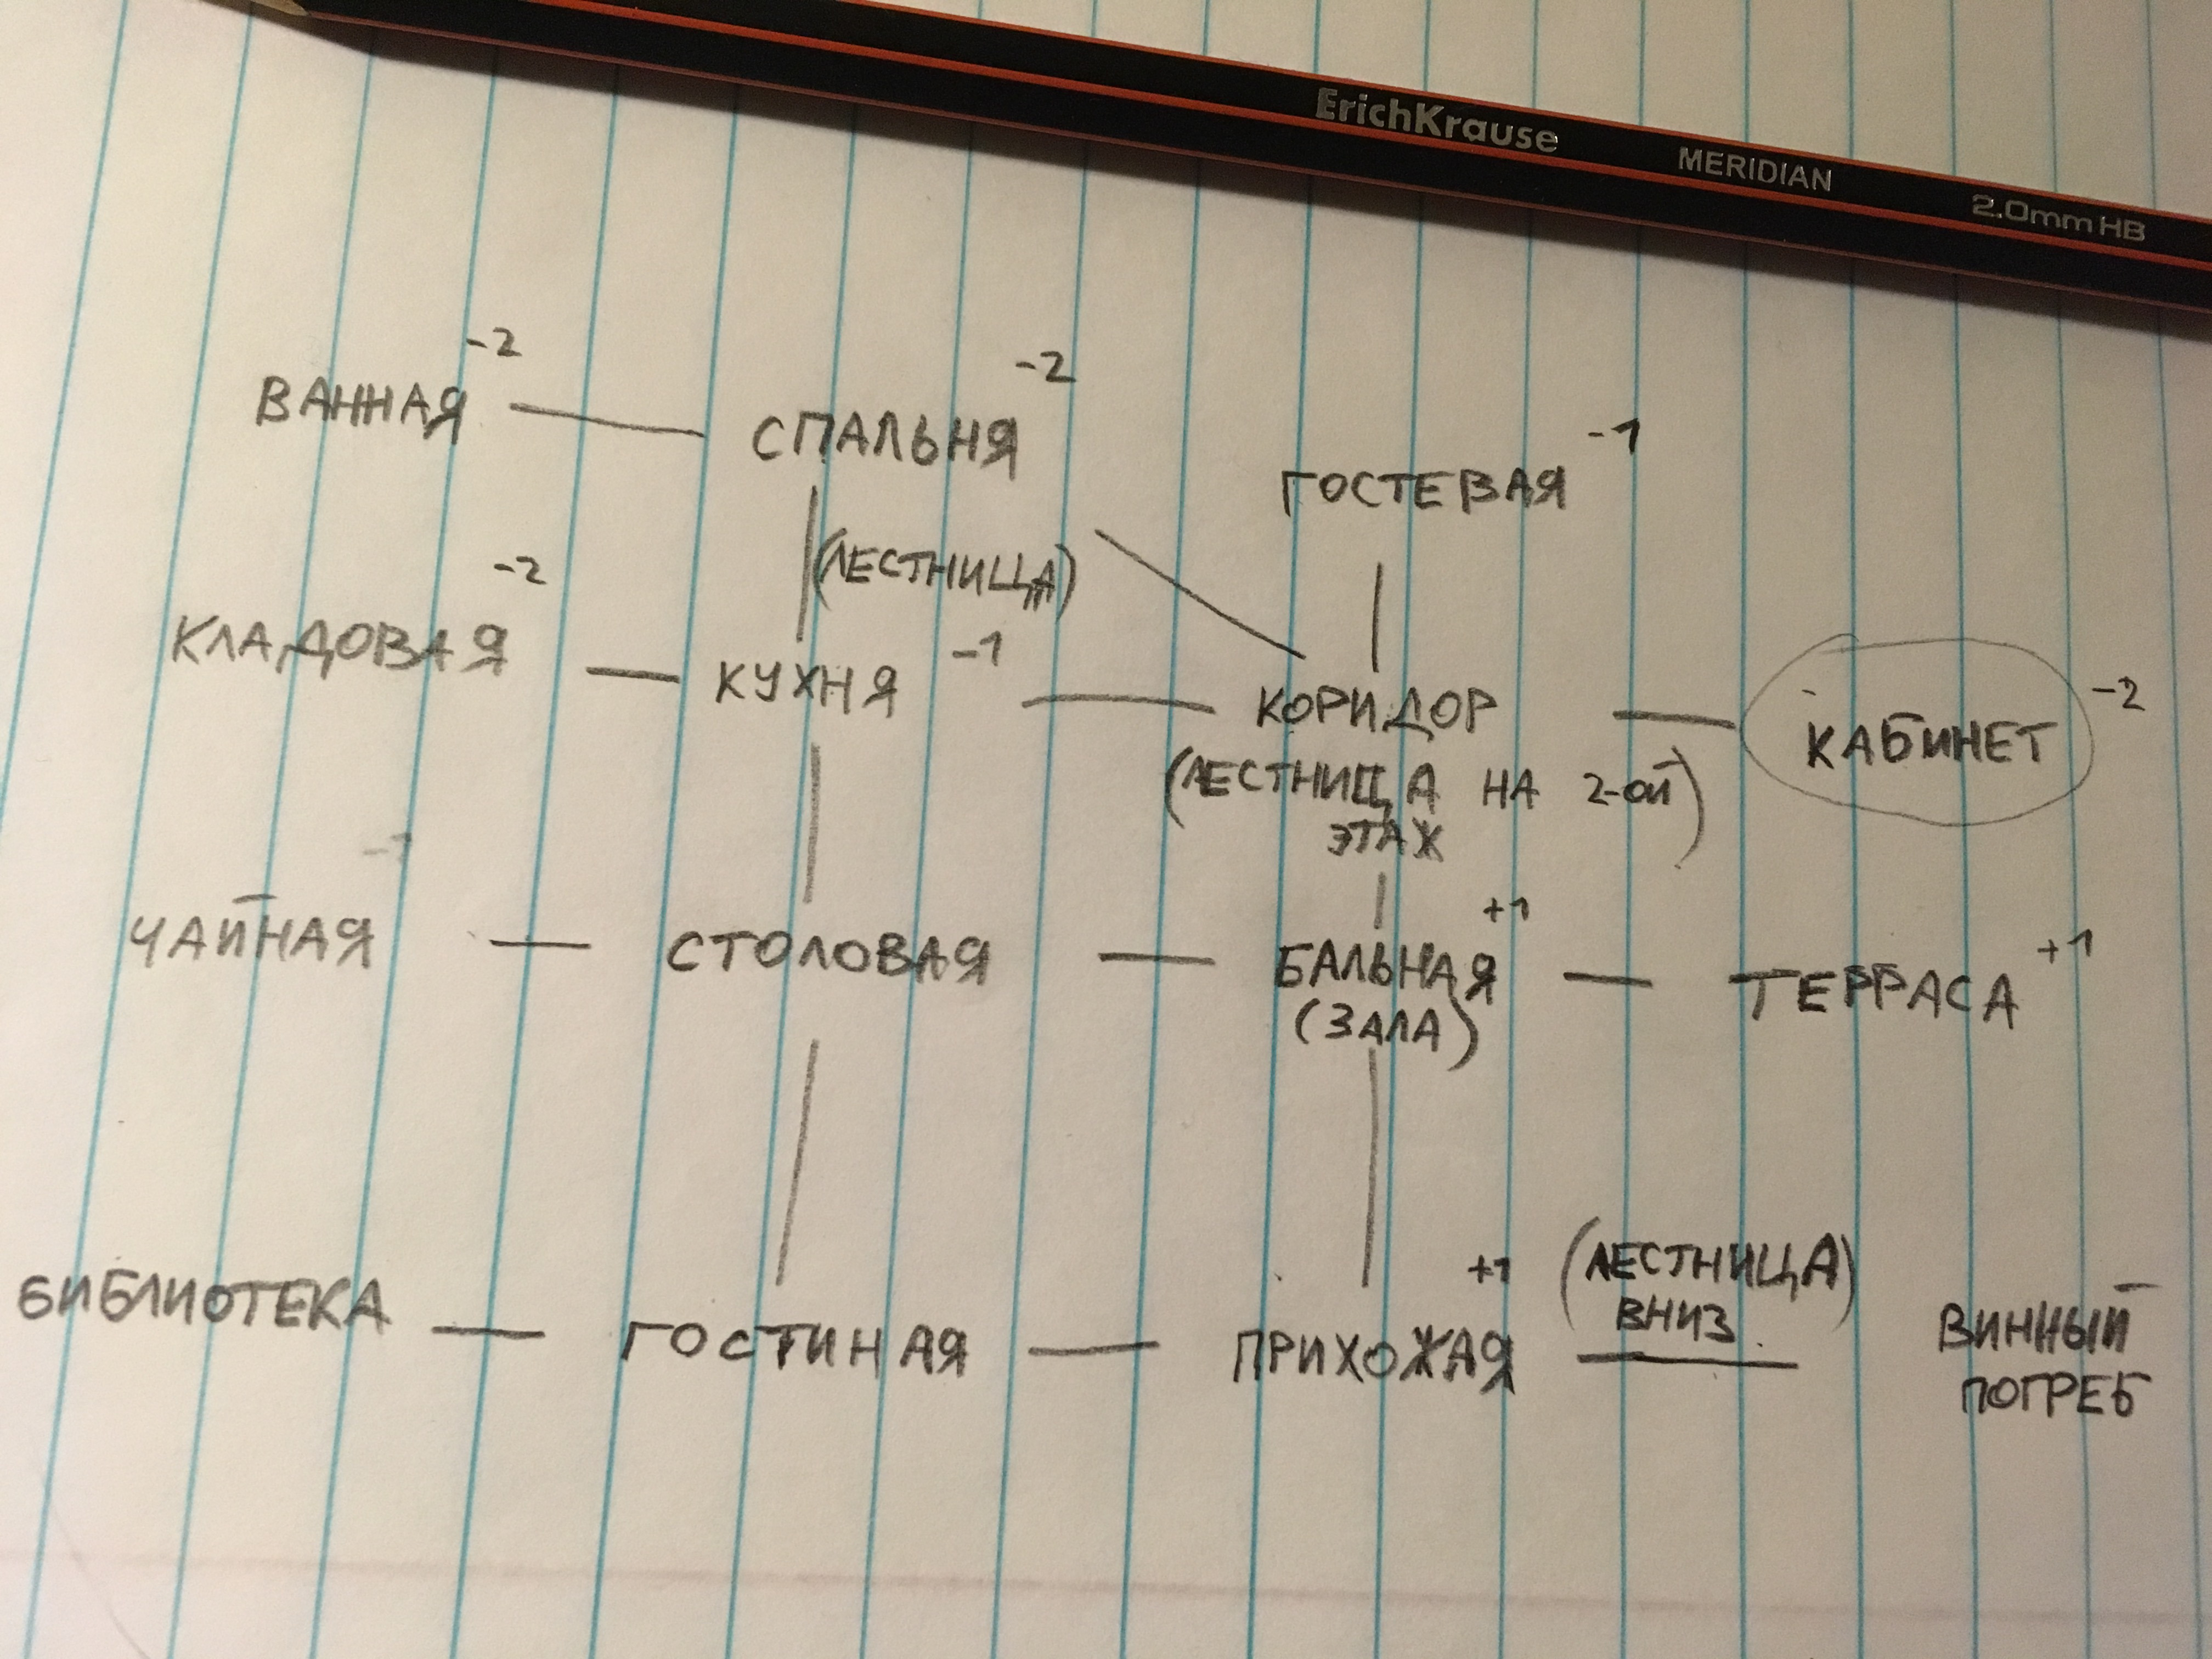 ErichKrause MERIDIAN 2.0mm HB
ВАННАЯ -2
СПАЛЬНЯ -2
ГОСТЕВАЯ -1
(ЛЕСТНИЦА)
КЛАДОВАЯ -2
КУХНЯ -1
КОРИДОР
(ЛЕСТНИЦА НА 2-ОЙ)
ЭТАЖ
КАБИНЕТ -2
ЧАЙНАЯ
СТОЛОВАЯ
БАЛЬНАЯ +1
(ЗАЛА)
ТЕРРАСА +1
БИБЛИОТЕКА
ГОСТИНАЯ
ПРИХОЖАЯ +1
(ЛЕСТНИЦА)
ВНИЗ
ВИННЫЙ
ПОГРЕБ